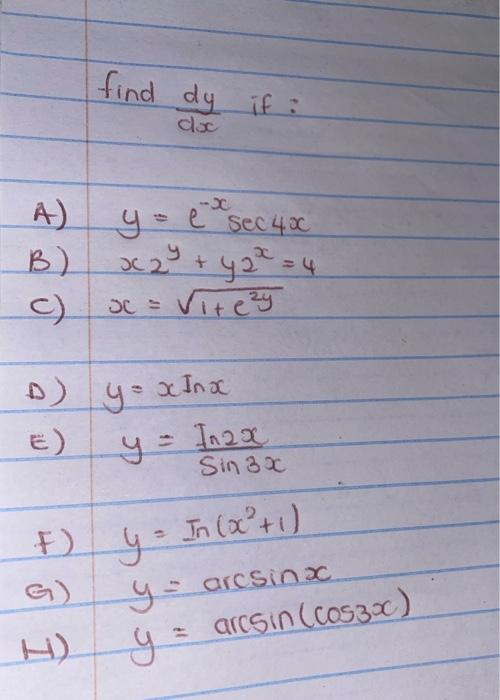 find dy/dx if :
A) y = e^-x sec4x
B) x2^y + y2^x = 4
C) x = √1+e^2y
D) y = x ln x
E) y = ln2x / Sin3x
F) y = ln(x²+1)
G) y = arcsinx
H) y = arcsin(cos3x)